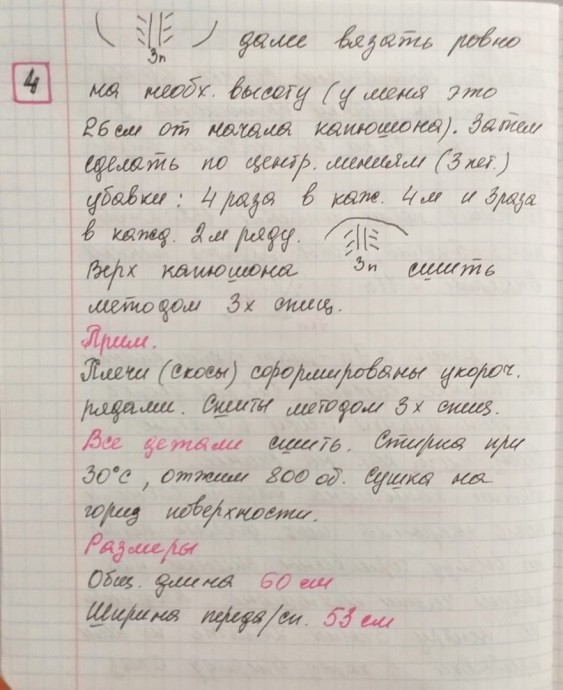 3п
далее вязать ровно
4
на необх. высоту (у меня это
26 см от начала капюшона). Затем
сделать по центр. линиям (3 пет.)
убавки: 4 раза в каж. 4 м и 3 раза
в кажд. 2 м ряду.
3п
Верх капюшона сшить
методом 3х спиц.
Прим.
Плечи (скосы) сформированы укороч.
рядами. Сшиты методом 3х спиц.
Все детали сшить. Стирка при
30°С, отжим 800 об. Сушка на
гориз поверхности.
Размеры
Общ. длина 60 см
Ширина переда/сп. 53 см